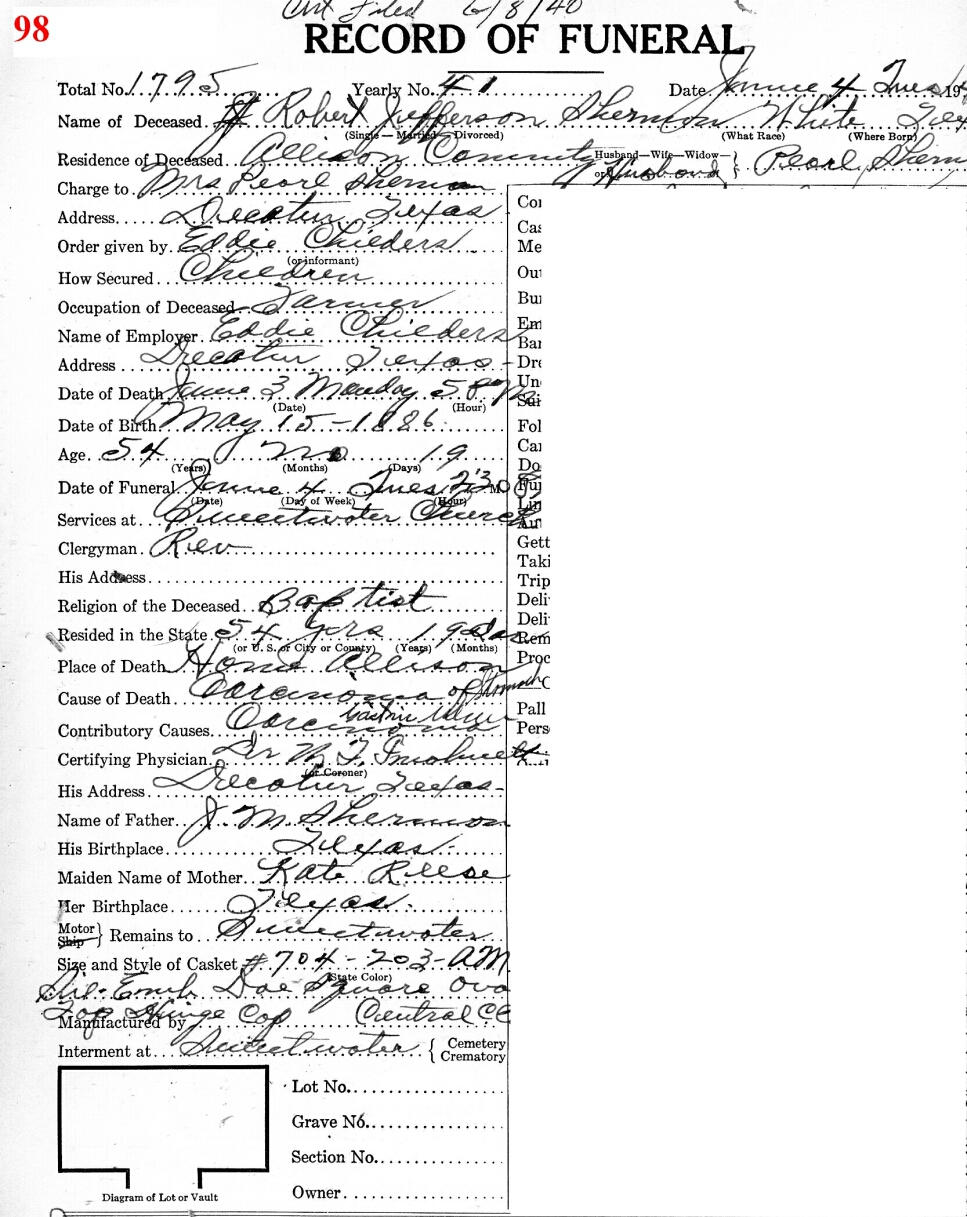 98
Crt Filed 6/8/40
RECORD OF FUNERAL
Total No. 1795 Yearly No. 41 Date June 4 Tues 19
Name of Deceased Robert Jefferson Sherman White Tex
(Single — Married — Divorced) (What Race) (Where Born)
Residence of Deceased Allison Community Husband—Wife—Widow— or Husband } Pearl Sherm
Charge to Mrs Pearl Sherman
Address Decatur, Texas Co
Order given by Eddie Childers Cas
(or informant) Me
How Secured Children Out
Occupation of Deceased Farmer Bu
Name of Employer Eddie Childers Em
Bar
Address Decatur Texas - Dre
Date of Death June 3 Monday 5 8 PM Un
(Date) (Hour) Sui
Date of Birth May 15 - 1886 Fol
Age 54 no 19 Car
(Years) (Months) (Days) Do
Date of Funeral June 4 Tues 2:30 M Fu
(Date) (Day of Week) (Hour) Lin
Services at Sweetwater Church Au
Clergyman Rev Gett
Taki
His Address Trip
Religion of the Deceased Baptist Deli
Deli
Resided in the State 54 yrs 19 das Rem
(or U. S. or City or County) (Years) (Months)
Place of Death Home Allison Proc
Cause of Death Carcinoma of Stomach
Gastric Ulcer Pall
Contributory Causes Carcinoma Pers
Certifying Physician Dr M. F.
(or Coroner)
His Address Decatur Texas -
Name of Father J. M. Sherman
His Birthplace Texas -
Maiden Name of Mother Kate Reese
Her Birthplace Texas.
Motor Ship } Remains to Sweetwater
Size and Style of Casket # 704 - 203 - AM
(State Color)
Sil. Emb. Doe Square Ova
Top Hinge Cap Central CC
Manufactured by
Interment at Sweetwater { Cemetery Crematory
Lot No.
Grave No.
Section No.
Owner
Diagram of Lot or Vault